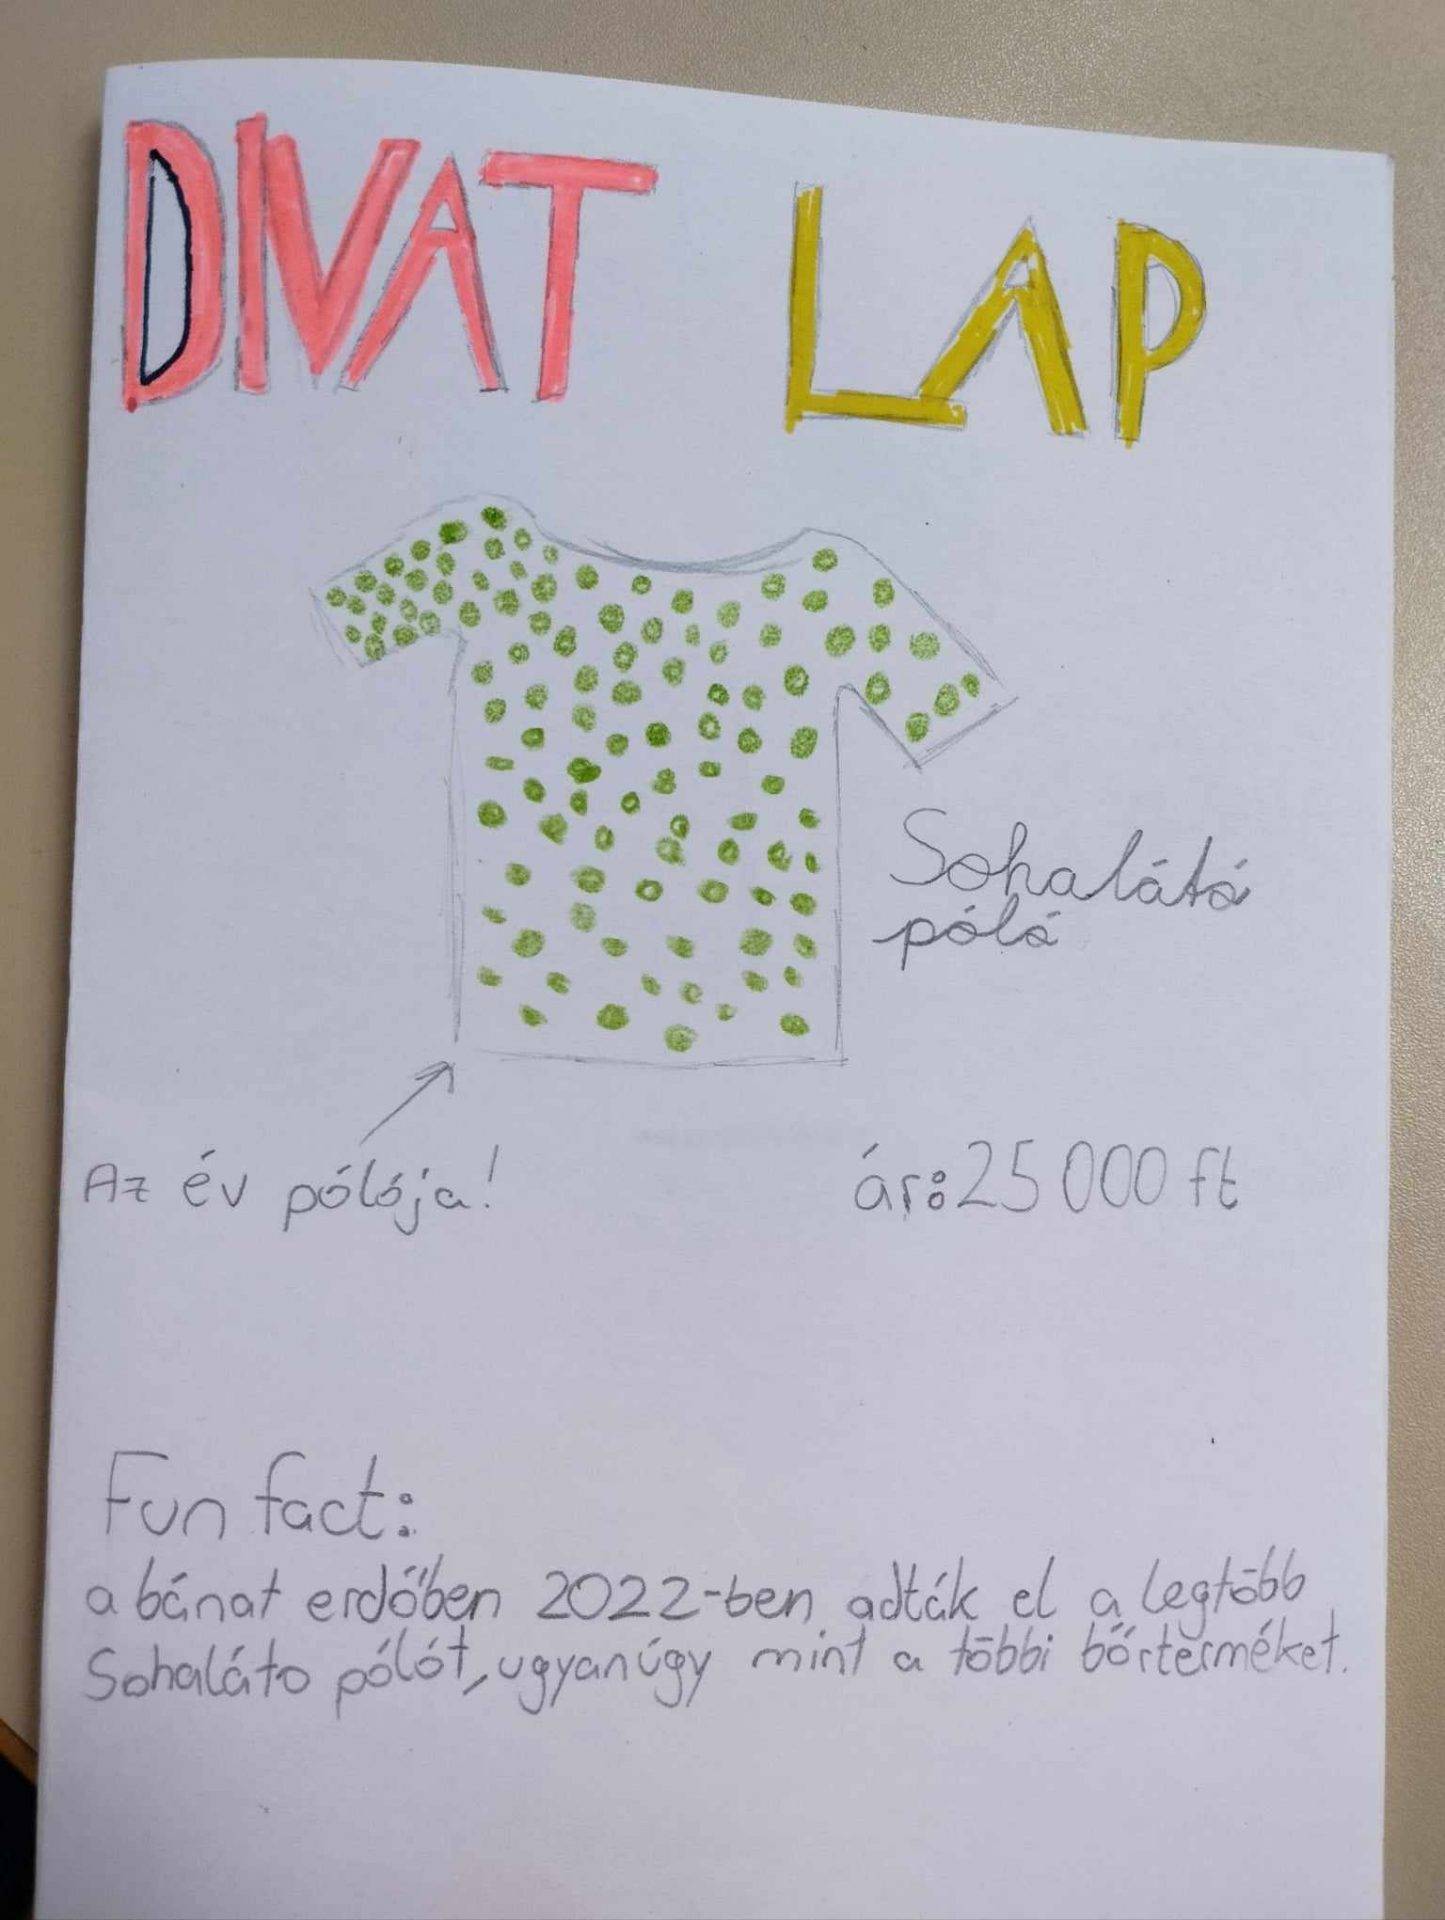 DIVAT LAP
Sohalátó
póló
Az év pólója!
ár: 25 000 ft
Fun fact:
a bánat erdőben 2022-ben adták el a legtöbb
Sohaláto pólót, ugyanúgy mint a többi bőrterméket.